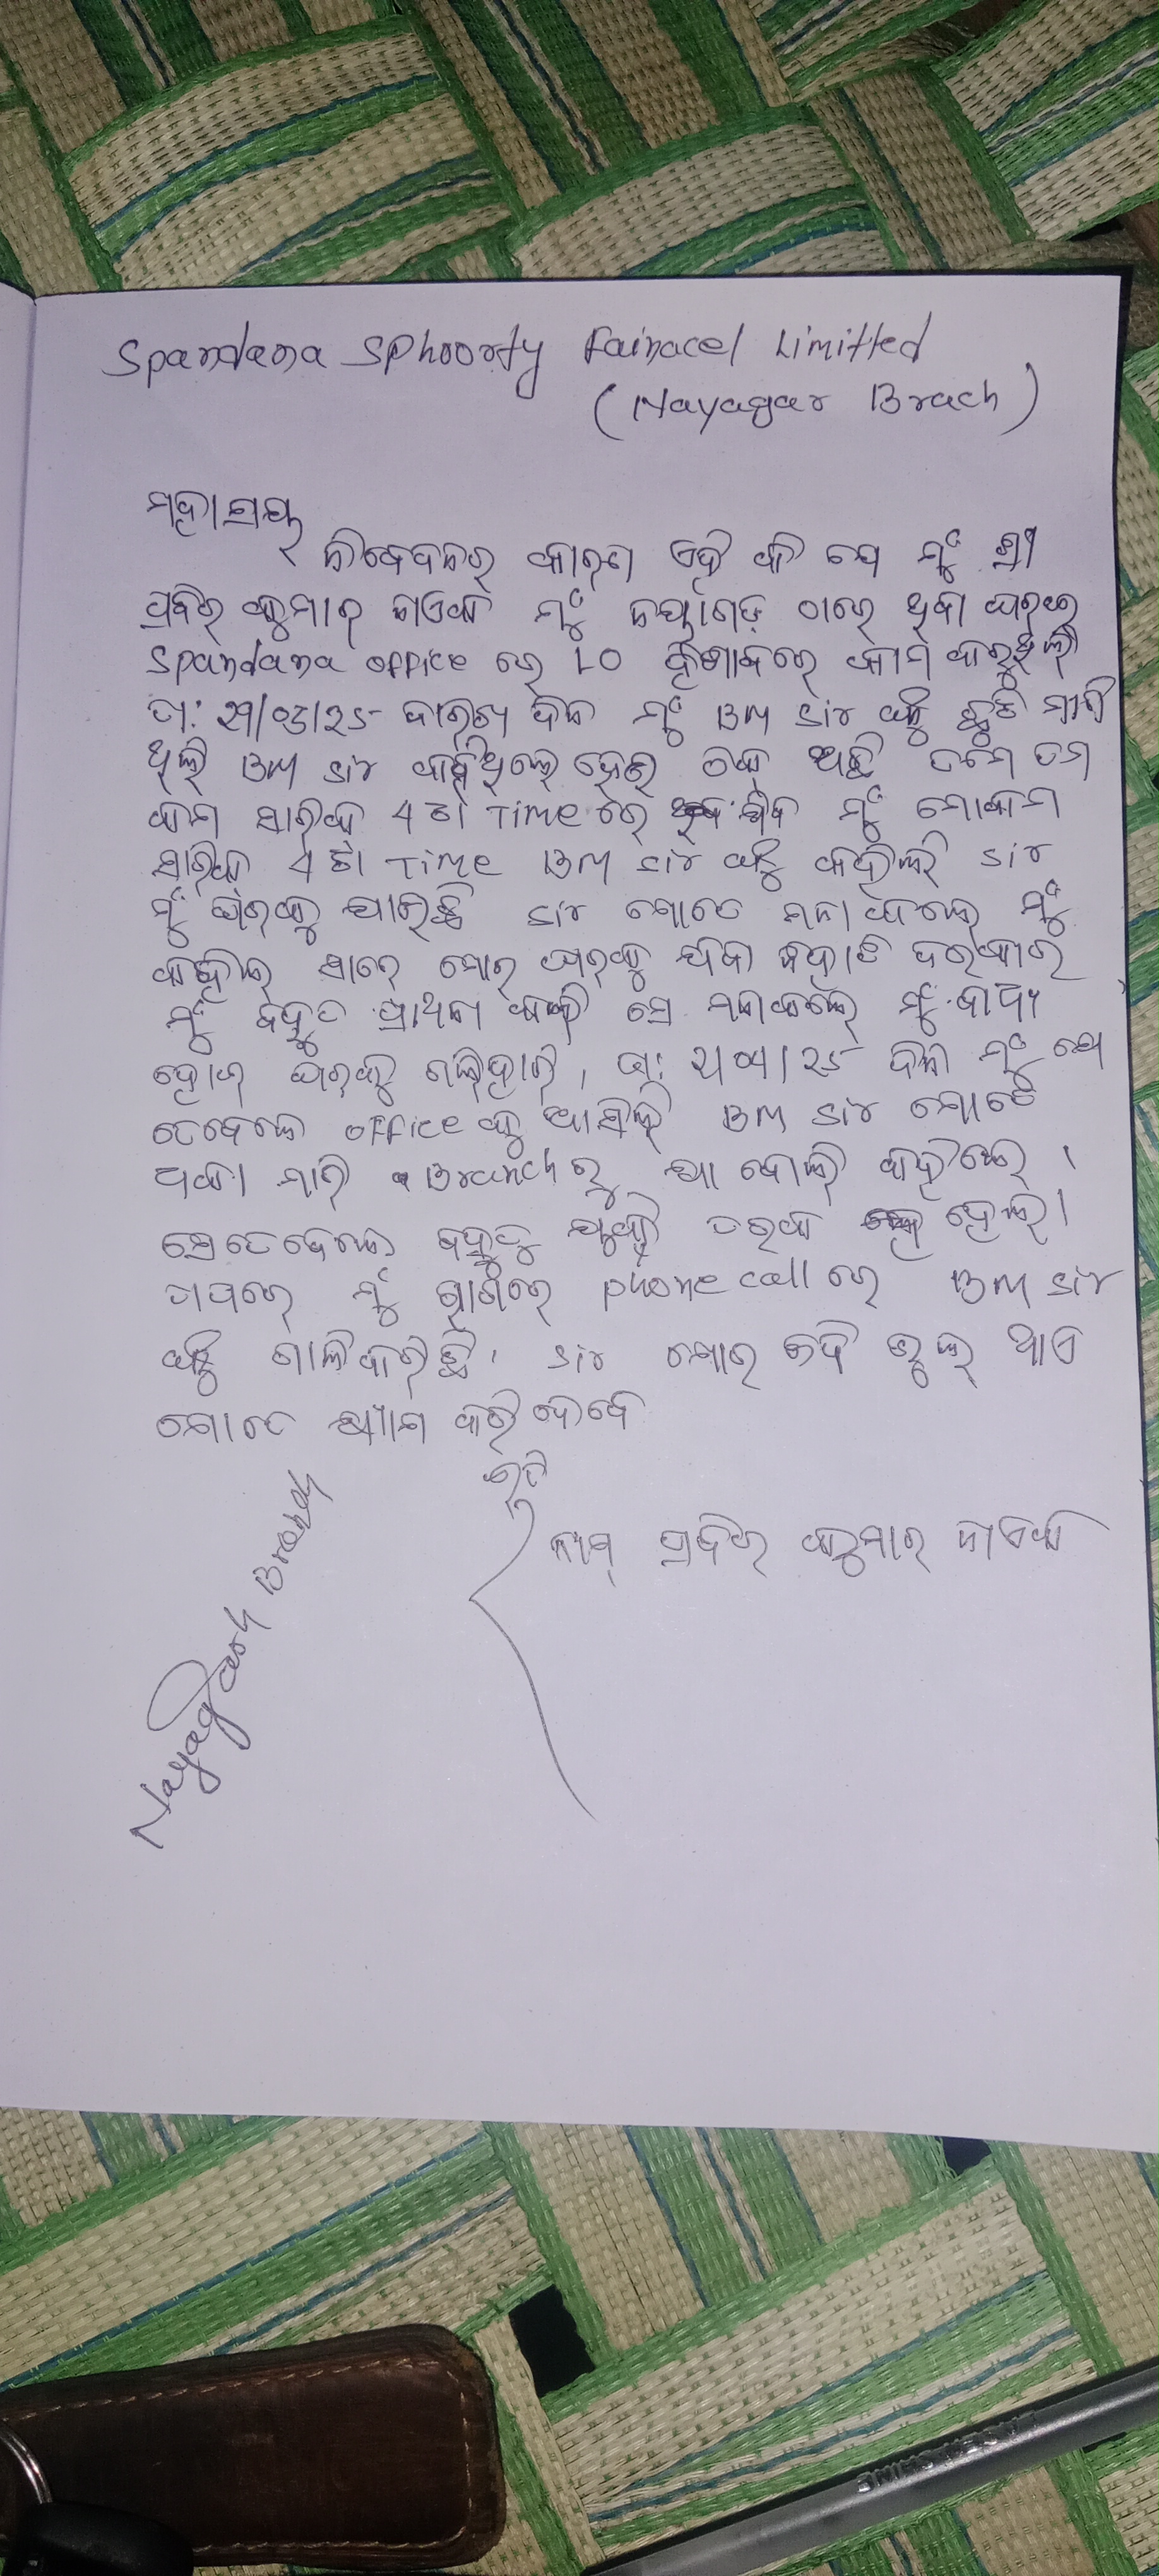 Spandana Sphoorty Fainacel Limitted
(Nayagar Brach)
ମହାଶୟ
ନିବେଦନର କାରଣ ଏହି କି ଯେ ମୁଁ ଶ୍ରୀ
ପ୍ରବିର କୁମାର ନାଏକ ମୁଁ ନୟାଗଡ଼ ଠାରେ ଥିବା
Spandana office ରେ LO ହିସାବରେ କାମ କରୁଥିଲି
ତା: ଦିନ ମୁଁ BM Sir ଙ୍କୁ ଛୁଟି ମାଗି
ଥିଲି BM Sir କହିଥିଲେ ହେଉ ଠିକ୍ ଅଛି ତମେ ତମ
କାମ ସାରିକି 4 ଟା Time ରେ ଯିବ ମୁଁ ମୋ କାମ
ସାରିକି 4 ଟା Time BM Sir ଙ୍କୁ କହିଲି Sir
ମୁଁ ଘରକୁ ଯାଉଛି Sir ମୋତେ ମନା କଲେ ମୁଁ
କହିଲି ସାର୍ ମୋର ଘରକୁ ଯିବା ଦରକାର
ମୁଁ ବହୁତ ପ୍ରାଥନା କଲି ସେ ମନାକଲେ ମୁଁ ବାଧ୍ୟ
ହୋଇ ଘରକୁ ଦିନ ମୁଁ ଯେ
ତେବେଳେ office କୁ ଆସିଲି BM Sir ମୋତେ
ଧକା ମାରି Branch ରୁ ଯା ବୋଲି କହିଲେ ।
ସେତେବେଳେ ବହୁତୁ ଯୁକ୍ତି ତର୍କ ହେଲା ।
ତାପରେ ମୁଁ ରାଗରେ phone call ରେ BM Sir
ଙ୍କୁ ଗାଳି କରିଛି । Sir ମୋର ଯଦି ଭୁଲ୍ ଥାଏ
ମୋତେ କ୍ଷମା କରି ଦେବେ
ଇତି
ନାମ୍ ପ୍ରବିର କୁମାର ନାଏକ
Nayagarh Branch